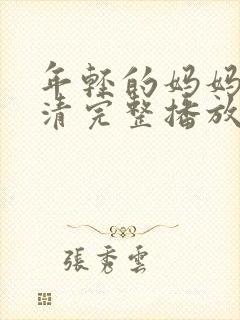 年轻的妈妈
清完整播放
張秀雲